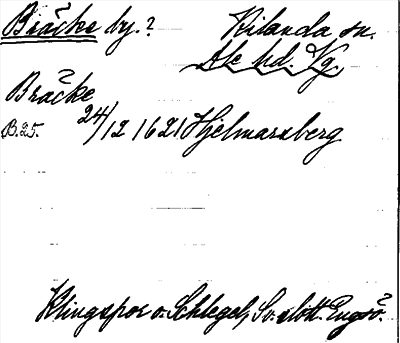 Bräcke by.? Kilanda sn.
Ale hd. Vg.
Bräcke
B.25. 24/12 1621 Hjelmarsberg
Klingspor o. Schlegel, Sv. slott. Engsö.